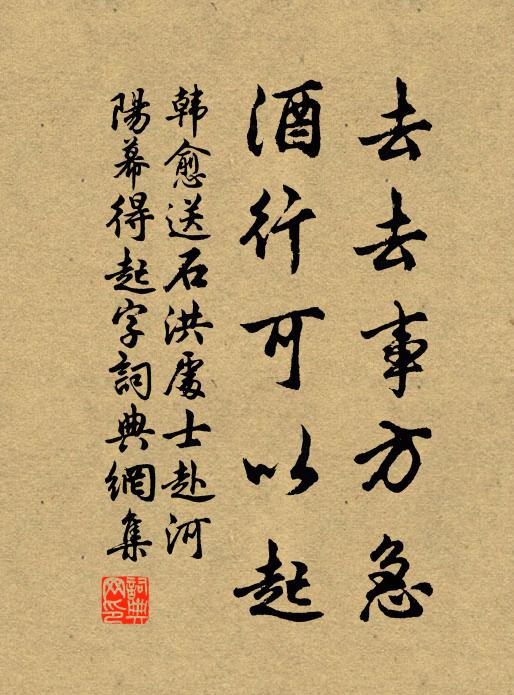 去去事方急
酒行可以起
韩愈送石洪處士赴河
陽幕得起字詞典網集
詞典
网印